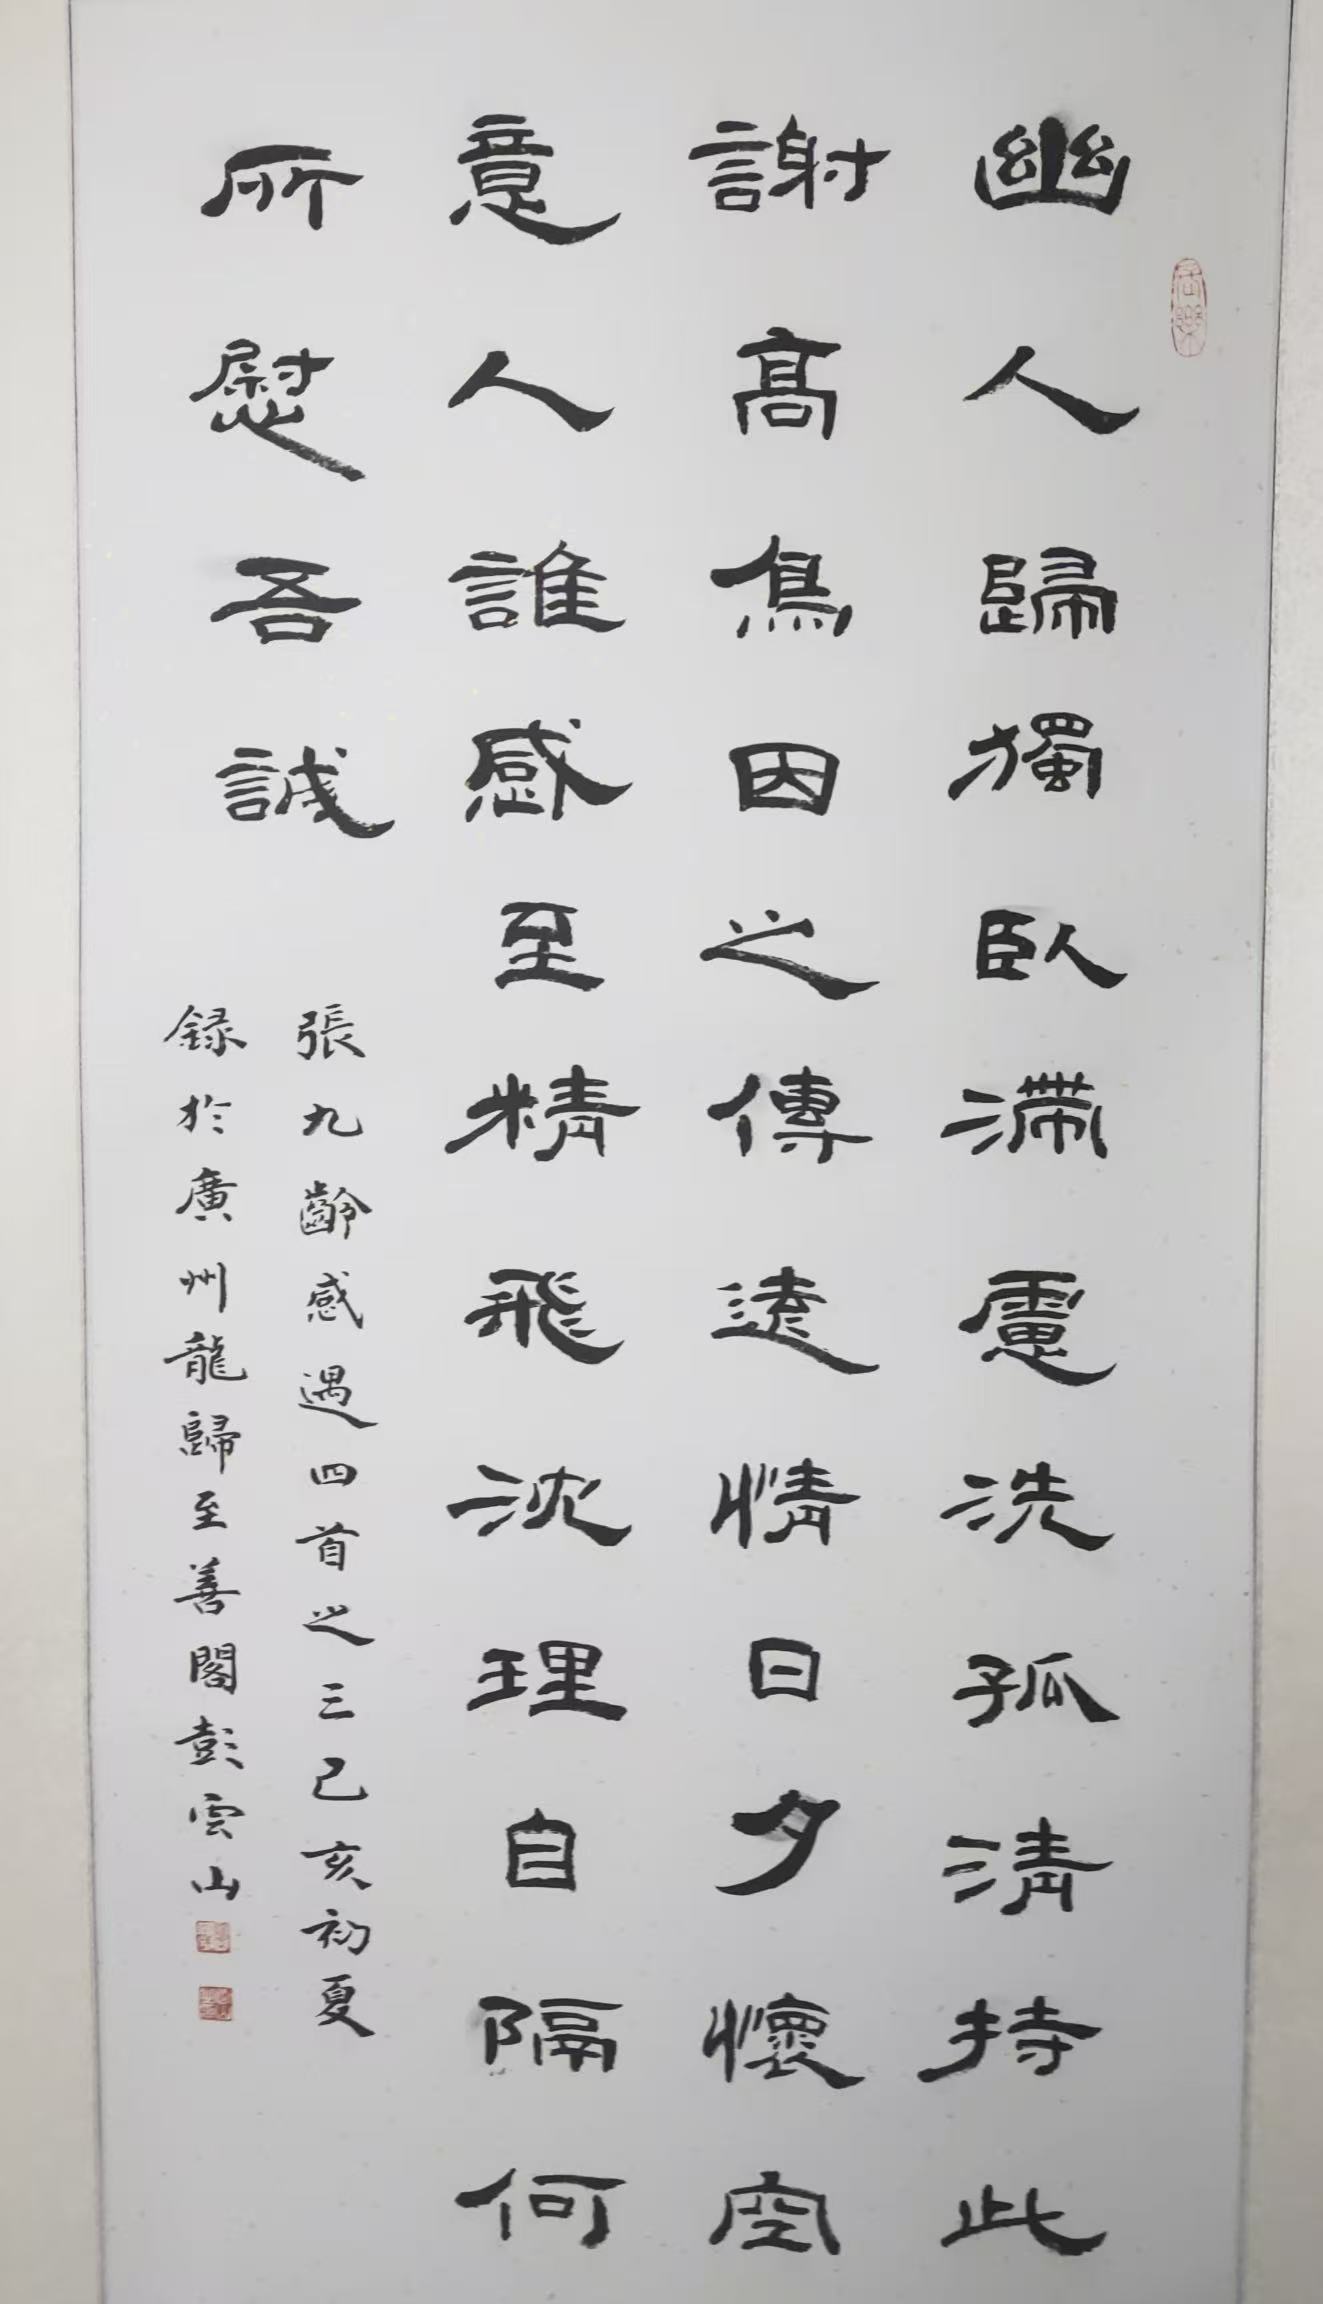 幽人歸獨臥滯慮洗孤清持此
謝高鳥因之傳遠情日夕懷空
意人誰感至精飛沈理自隔何
所慰吾誠
張九齡感遇四首之三己亥初夏
録於廣州龍歸至善閣彭雲山